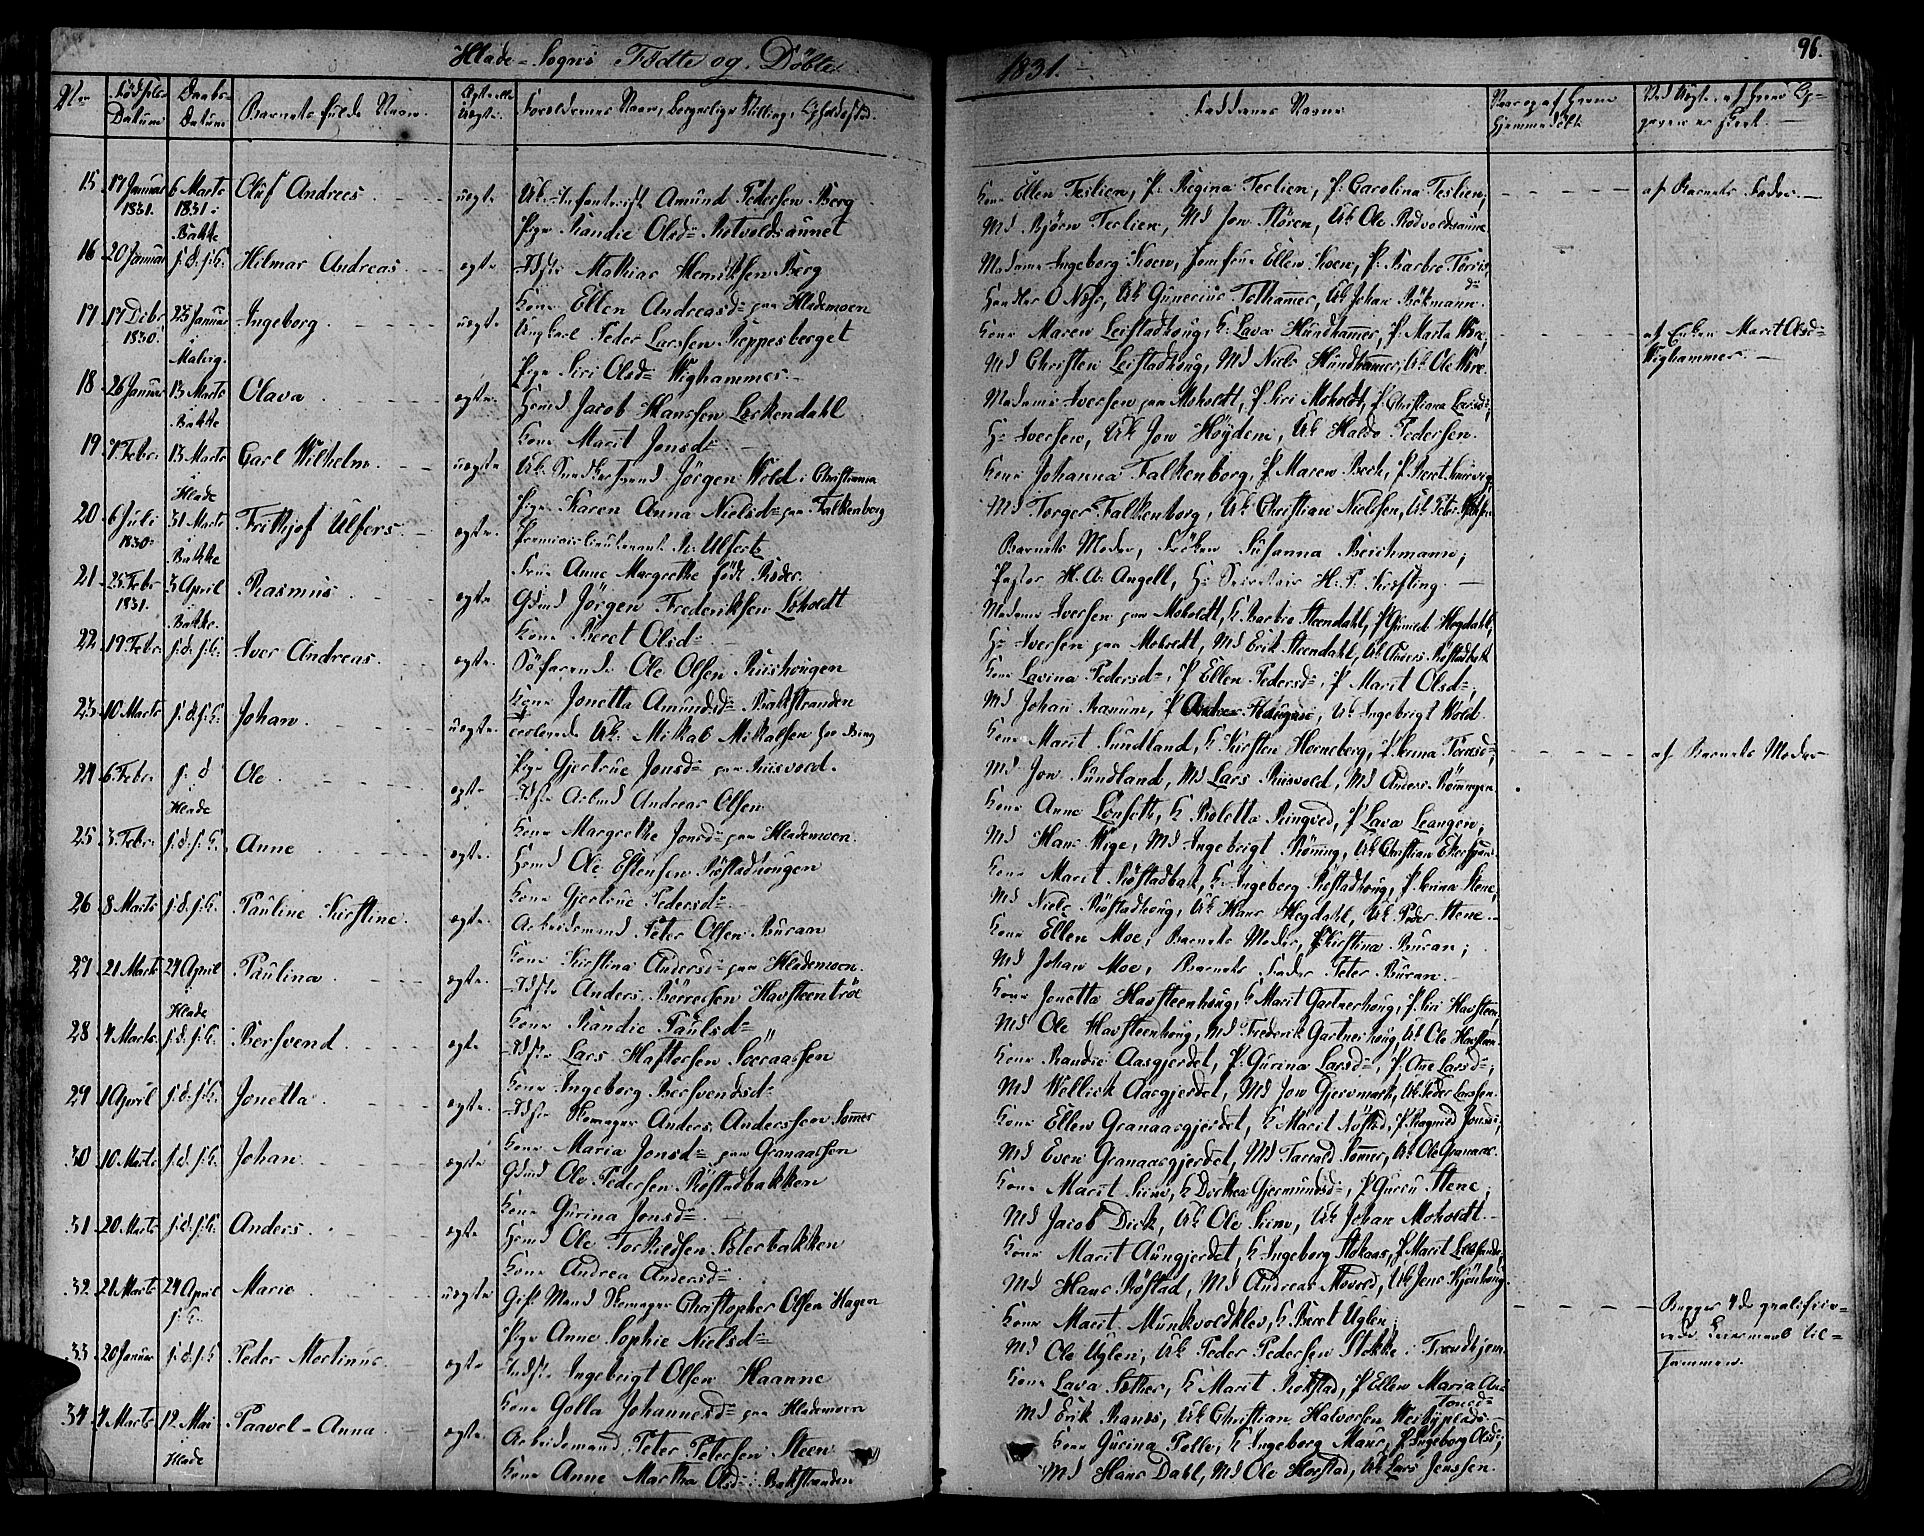 Hlade-Sogns Fødte og Døbte
1831.
96.
Nr. Fødsels-Datum Daabs-Datum Barnets fulde Navn. Ægte eller Uægte. Forældrenes Navn, borgerlige Stilling, Opholdssted.
Faddernes Navne
Naar og af hvem hjemmedøbt
Ved Uægte, af hvem Opgaven er skeet.
15 17 Januar 1831. 6 Marts 1831 i Bakke Oluf Andrees uægte Uk. Infanterist Amund Pedersen Berg
Pige Randie Olsd Rotvoldsaunet
Kone Ellen Teslien, P: Regina Teslien, P: Carolina Teslien,
Md Bjørn Teslien, Md Jon Støren, Uk Ole Rodvoldsaune
af Barnets Fader.
16 20 Januar s:d: s:K: Hilmar Andreas ægte Idste Mathias Henriksen Berg
Kone Ellen Andreasd paa Hlademoen
Madame Ingeborg Koen, Jomfrue Ellen Koen, P: Barbro
Uk Gunerius Tolhammer, Uk Johan Bökmann
17 17 Debr 1830. 23 Januar i Malvig. Ingeborg uægte Ungkarl Peder Larssen Reppesberget
Pige Siri Olsd Wighammer
Kone Maren Leistadhoug, K: Lava Hundhammer, P: Marta
Md Christen Leistadhoug, Md Niels Hundhammer, Uk Ole
af Enken Marit Olsd
Wighammer.
18 26 Januar 13 Marts i Bakke Olava ægte Hmd Jacob Hanssen Leckendahl
Kone Marit Jonsd
Madame Iversen paa Moholdt, P. Siri Moholdt, P: Christiana
H: Iversen, Uk Jon Høydem, Uk Haldo Pedersen.
19 7 Febr. 13 Marts i Hlade Carl Wilhelm uægte Uk. Jörgen Wold i Christiania
Pige Karen Anna Nielsd paa Falkenberg
Kone Johanna Falkenborg, P Maren Beck, P Beret
Md Torger Falkenborg, Uk Christian Nielsen, Uk Petr
20 6 Juli 1830 31 Marts i Bakke Frithjof Ulfers ægte Premierlieutenant Ulfers
Frue Anne Margrethe født Roder
Barnets Moder, Frøken Susanna Beichmann;
Pastor H. A. Angell, H: Secretair H. P. Kiesling.
21 25 Febr 1831. 3 April i Bakke. Rasmus ægte Gmd Jörgen Frederiksen Loholdt
Kone Beret Olsd
Madame Iversen paa Moholdt, K Barbro Steendahl, P Gunild Hegdahl,
H: Iversen paa Moholdt, Md Erik Steendahl, Uk Anders Röstadbak
22 19 Febr s:d: s:K: Iver Andreas ægte Söfarende Ole Olsen Riishougen
Kone Jonetta Amundsd Bakstranden
Kone Lavina Pedersd, P Ellen Pedersd, P Marit Olsd,
Md Johan Ranum, Uk Ingebrigt Wold
23 10 Marts s:d: s:K: Johan uægte Uk. Mikal Mikalsen
Pige Gjertrue Jonsd paa Riisvold.
Kone Marit Sundland, K Kirsten Horneberg, P. Anna
Md Jon Sundland, Md Lars Riisvold, Md Anders Rönningen
af Barnets Moder
24 6 Febr. s: d Hlade Ole ægte Idste Arbmd Andreas Olsen
Kone Margrethe Jonsd paa Hlademoen
Kone Anne Lonseth, K Boletta Ringved, P Lava Leangen,
Md Hans Wige, Md Ingebrigt Rönning, Uk Christian
25 3 Febr. s:d: s:K: Anne ægte Hmd Ole Estensen Röstadhougen
Kone Gjertrue Pedersd
Kone Marit Röstadbak, K Ingeborg Röstadhoug, P Anna Stene,
Md Niels Röstadhoug, Uk Hans Hegdahl, Uk Peder Stene
26 8 Marts s:d: s:K: Pauline Kirstine ægte Arbeidsmand Peter Olsen Buran
Kone Kirstina Andersd paa Hlademoen
Kone Ellen Moe, Barnets Moder, P Kirstina Buran;
Md Johan Moe, Barnets Fader Peter Buran
27 21 Marts 24 April i Hlade Paulina ægte Idste Anders Börresen Havsteentrøe
Kone Randie Paulsd
Kone Jonetta Havsteenhoug, K Marit Gartnerhoug, P. Siri Havsteen
Md Ole Havsteenhoug, Md Frederik Gartnerhoug, Uk Ole Havsteen
28 4 Marts s:d: s:K: Bersvend ægte Idste Lars Haftorsen Sæeraasen
Kone Ingeborg Bersvendsd
Kone Randie Aasgjerdet, P: Gurina Larsd, P: Ane Larsd,
Md Wellick Aasgjerdet, Md Jon Gjervmark, Uk Peder Larssen
29 1 April s:d: s:K: Jonetta ægte Idste Skomager Anders Anderssen Sommer
Kone Maria Jonsd paa Granaassen
Kone Ellen Granaasgjerdet, K Marit Röstad, P Ragnild Jonsd,
Md Even Granaasgjerdet, Md Taraald Sommer, Uk Ole Granaas
30 10 Marts s:d: s:K: Johan ægte Gmd Ole Pedersen Röstadbakken
Kone Gurina Jonsd
Kone Marit Siem, K Dorthea Gjermundsd, P Guru Stene;
Md Jacob Dick, Uk Ole Siem, Uk Johan Moholdt
31 20 Marts s:d: s:K: Anders ægte Hmd Ole Torkildsen Sæterbakken
Kone Andrea Andersd
Kone Marit Aungjerdet, K Ingeborg Stokaas, P Marit
Md Hans Röstad, Md Andreas Movold, Uk Jens
32 21 Marts 24 April s:K: Marie uægte Gift Mand Skomager Christopher Olsen Hagen
Pige Anne Sophie Nielsd
Kone Marit Munkvoldklev, K Beret Uglen;
Md Ole Uglen, Uk Peder Pedersen Stokke i Trondhjem
Begges 4de qualificerede Leiermaal tilsammen.
33 20 Januar s:d: s:K Peder Martinus ægte Indste Ingebrigt Olsen Haanne
Kone Golla Johannesd paa Hlademoen
Kone Lava Sæther, K Marit Rotstad, P Ellen Maria
Md Erik Rands, Uk Christian Halvorsen
34 4 Marts 12 Mai Hlade Paavel-Anna ægte Arbeidsmand Peter Petersen Steen
Kone Anne Martha Olsd i Bakstranden
Kone Gurina Polle, K Ingeborg Maur, P Ingeborg Olsd,
Md Hans Dahl, Md Ole Horstad, Uk Lars Jenssen.